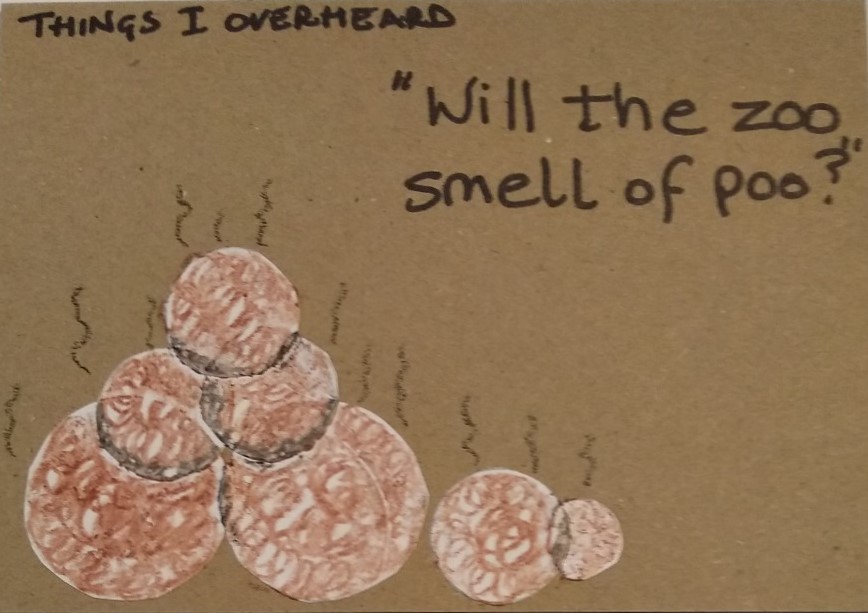 THINGS I OVERHEARD
"Will the zoo
smell of poo?"